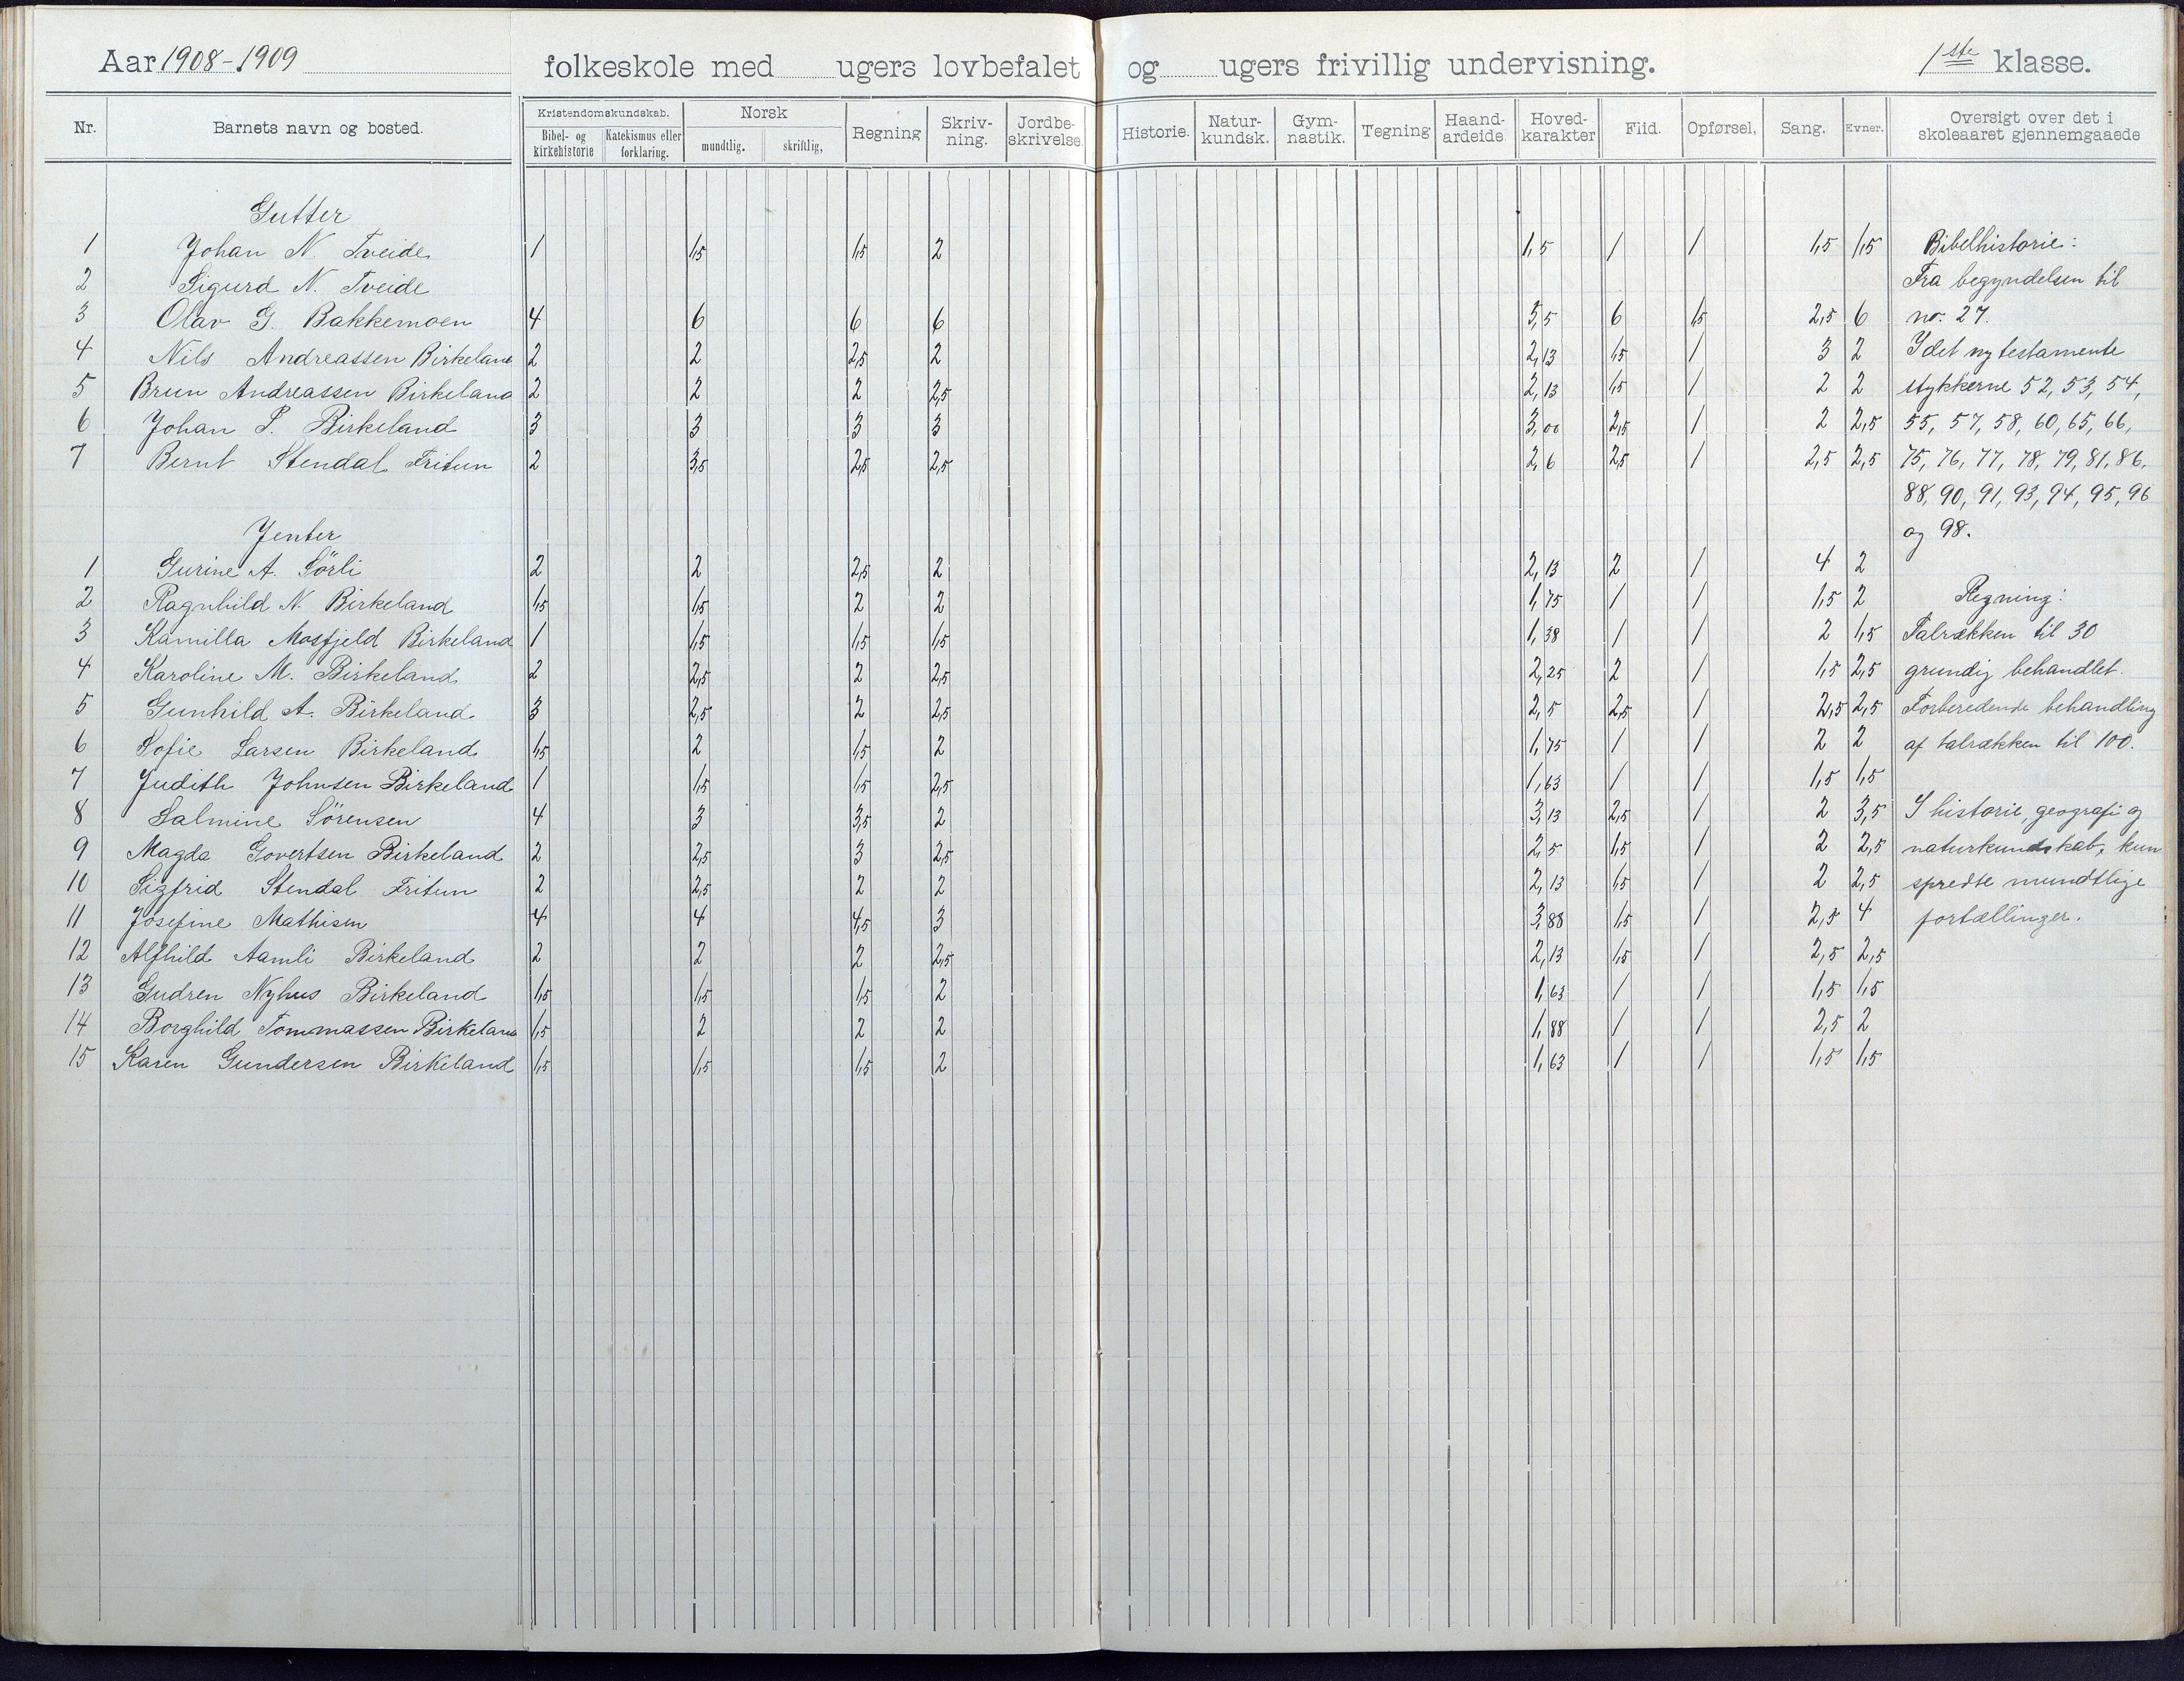 Aar 1908-1909 folkeskole med ugers lovbefalet og ugers frivillig undervisning. 1ste klasse.
Nr. Barnets navn og bosted. Kristendomskundskab. Norsk Regning Skriv-ning. Jordbe-skrivelse. Historie. Natur-kundsk. Gym-nastik. Tegning Haand-arbeide. Hoved-karakter Flid. Opførsel, Sang. Evner. Oversigt over det i skoleaaret gjennemgaaede
Bibel- og kirkehistorie Katekismus eller forklaring. mundtlig. skriftlig,
Gutter
1 Johan N. Tveide 1 1,5 1,5 2 1,5 1 1 1,5 1,5 Bibelhistorie:
2 Sigurd N. Tveide Fra begyndelsen til
3 Olav G. Bakkemoen 4 6 6 6 5,5 6 1,5 2,5 6 no. 27.
4 Nils Andreassen Birkeland 2 2 2,5 2 2,13 1,5 1 3 2 I det ny testamente
5 Brun Andreassen Birkeland 2 2 2 2,5 2,13 1,5 1 2 2 stykkerne 52, 53, 54,
6 Johan P. Birkeland 3 3 3 3 3,00 2,5 1 2 2,5 55, 57, 58, 60, 65, 66,
7 Bernt Stendal Fritun 2 3,5 2,5 2,5 2,6 2,5 1 2,5 2,5 75, 76, 77, 78, 79, 81, 86,
88, 90, 91, 93, 94, 95, 96
Jenter
og 98.
1 Gurine A. Sörli 2 2 2,5 2 2,13 2 1 4 2
2 Ragnhild N. Birkeland 1,5 1,5 2 2 1,75 1 1 1,5 2 Regning:
3 Kamilla Mosfjeld Birkeland 1 1,5 1,5 1,5 1,38 1 1 2 1,5 Talrækken til 30
4 Karoline M. Birkeland 2 2,5 2 2,5 2,25 2 1 1,5 2,5 grundig behandlet.
5 Gunhild A. Birkeland 3 2,5 2 2,5 2,5 2,5 1 2,5 2,5 Forberedende behandling
6 Sofie Larsen Birkeland 1,5 2 1,5 2 1,75 1 1 2 2 af talrækken til 100.
7 Judith Johnsen Birkeland 1 1,5 1,5 2,5 1,63 1 1 1,5 1,5
8 Salmine Sörensen 4 3 3,5 2 3,13 2,5 1 2 3,5 I historie, geografi og
9 Magda Govertsen Birkeland 2 2,5 3 2,5 2,5 1,5 1 2 2,5 naturkundskab, kun
10 Sigfrid Stendal Fritun 2 2,5 2 2 2,13 1,5 1 2 2,5 spredte mundtlige
11 Josefine Mathisen 4 4 4,5 3 3,88 1,5 1 2,5 4 fortællinger.
12 Alfhild Aamli Birkeland 2 2 2 2,5 2,13 1,5 1 2,5 2,5
13 Gudren Nyhus Birkeland 1,5 1,5 1,5 2 1,63 1 1 1,5 1,5
14 Borghild Tommassen Birkeland 1,5 2 2 2 1,88 1 1 2,5 2
15 Karen Gundersen Birkeland 1,5 1,5 1,5 2 1,63 1 1 1,5 1,5